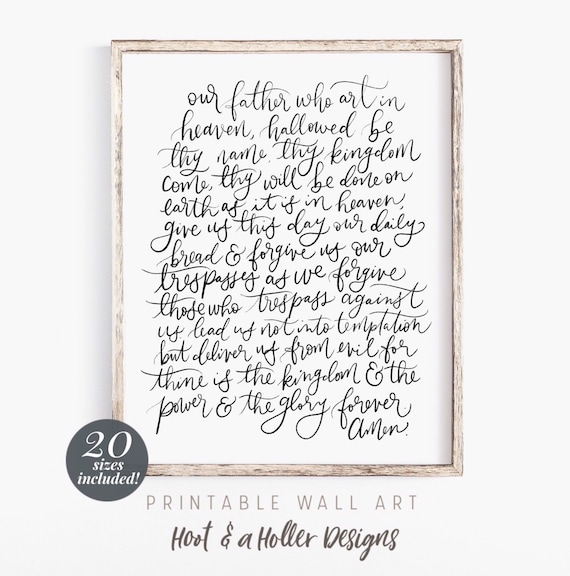 our father who art in
heaven, hallowed be
thy name. thy kingdom
come, thy will be done on
earth as it is in heaven,
give us this day our daily
bread & forgive us our
trespasses as we forgive
those who trespass against
us. lead us not into temptation
but deliver us from evil. for
thine is the kingdom & the
power & the glory forever
Amen.
20
sizes
included!
PRINTABLE WALL ART
Hoot & a Holler Designs